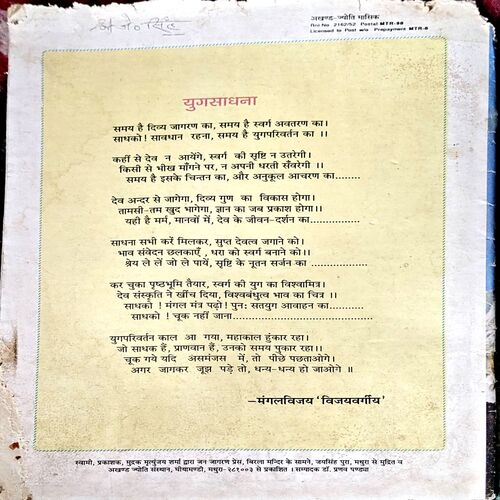 अखण्ड-ज्योति मासिक
Rni No. 2162/52 Postal MTR-98
Licensed to Post w/o Prepayment MTR-8
युगसाधना
समय है दिव्य जागरण का, समय है स्वर्ग अवतरण का।
साधको! सावधान रहना, समय है युगपरिवर्तन का ।।
कहीं से देव न आयेंगे, स्वर्ग की सृष्टि न उतरेगी।
किसी से भीख माँगने पर, न अपनी धरती सँवरेगी ।।
समय है इसके चिन्तन का, और अनुकूल आचरण का........
देव अन्दर से जागेगा, दिव्य गुण का विकास होगा।
तामसी-तम खुद भागेगा, ज्ञान का जब प्रकाश होगा।।
यही है मर्म, मानवों में, देव के जीवन-दर्शन का........
साधना सभी करें मिलकर, सुप्त देवत्व जगाने को।
भाव संवेदन छलकाएँ , धरा को स्वर्ग बनाने को।।
श्रेय ले लें जो ले पायें, सृष्टि के नूतन सर्जन का ................
कर चुका पृष्ठभूमि तैयार, स्वर्ग की युग का विश्वामित्र।
देव संस्कृति ने खींच दिया, विश्वबंधुत्व भाव का चित्र ।।
साधको ! मंगल मंत्र पढ़ो ! पुनः सतयुग आवाहन का............
साधको ! चूक नहीं जाना......................................
युगपरिवर्तन काल आ गया, महाकाल हुंकार रहा।
जो साधक हैं, प्राणवान हैं, उनको समय पुकार रहा।।
चूक गये यदि असमंजस में, तो पीछे पछताओगे।
अगर जागकर जूझ पड़े तो, धन्य-धन्य हो जाओगे ॥
–मंगलविजय 'विजयवर्गीय'
स्वामी, प्रकाशक, मुद्रक मृत्युंजय शर्मा द्वारा जन जागरण प्रेस, बिरला मन्दिर के सामने, जयसिंह पुरा, मथुरा से मुद्रित व
अखण्ड ज्योति संस्थान, घीयामण्डी, मथुरा-२८१००३ से प्रकाशित । सम्पादक डॉ. प्रणव पण्ड्या